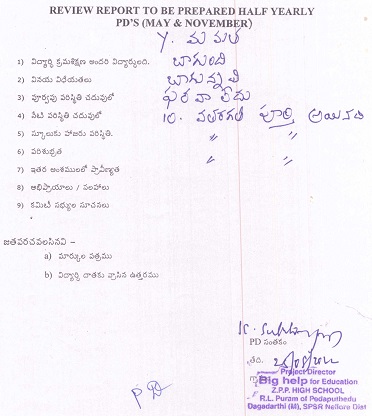 REVIEW REPORT TO BE PREPARED HALF YEARLY
PD'S (MAY & NOVEMBER)
Y. మమత
1) విద్యార్థి క్రమశిక్షణ అందరి విద్యార్థులది. బాగుంది
2) వినయ విధేయతలు బాగున్నవి
3) పూర్వపు పరిస్థితి చదువులో పరవాలేదు
4) నేటి పరిస్థితి చదువులో 10. వతరగతి పూర్తి అయినది
5) స్కూలుకు హాజరు పరిస్థితి. "   "
6) పరిశుభ్రత "   "
7) ఇతర అంశములలో ప్రావీణ్యత
8) అభిప్రాయాలు / సలహాలు
9) కమిటీ సభ్యుల సూచనలు
జతపరచవలసినవి –
a) మార్కుల పత్రము
b) విద్యార్థి దాతకు వ్రాసిన ఉత్తరము
PD సంతకం
తేది.
PD
Project Director
Big help for Education
Z.P.P. HIGH SCHOOL
R.L. Puram of Pedaputhedu
Dagadarthi (M), SPSR Nellore Dist